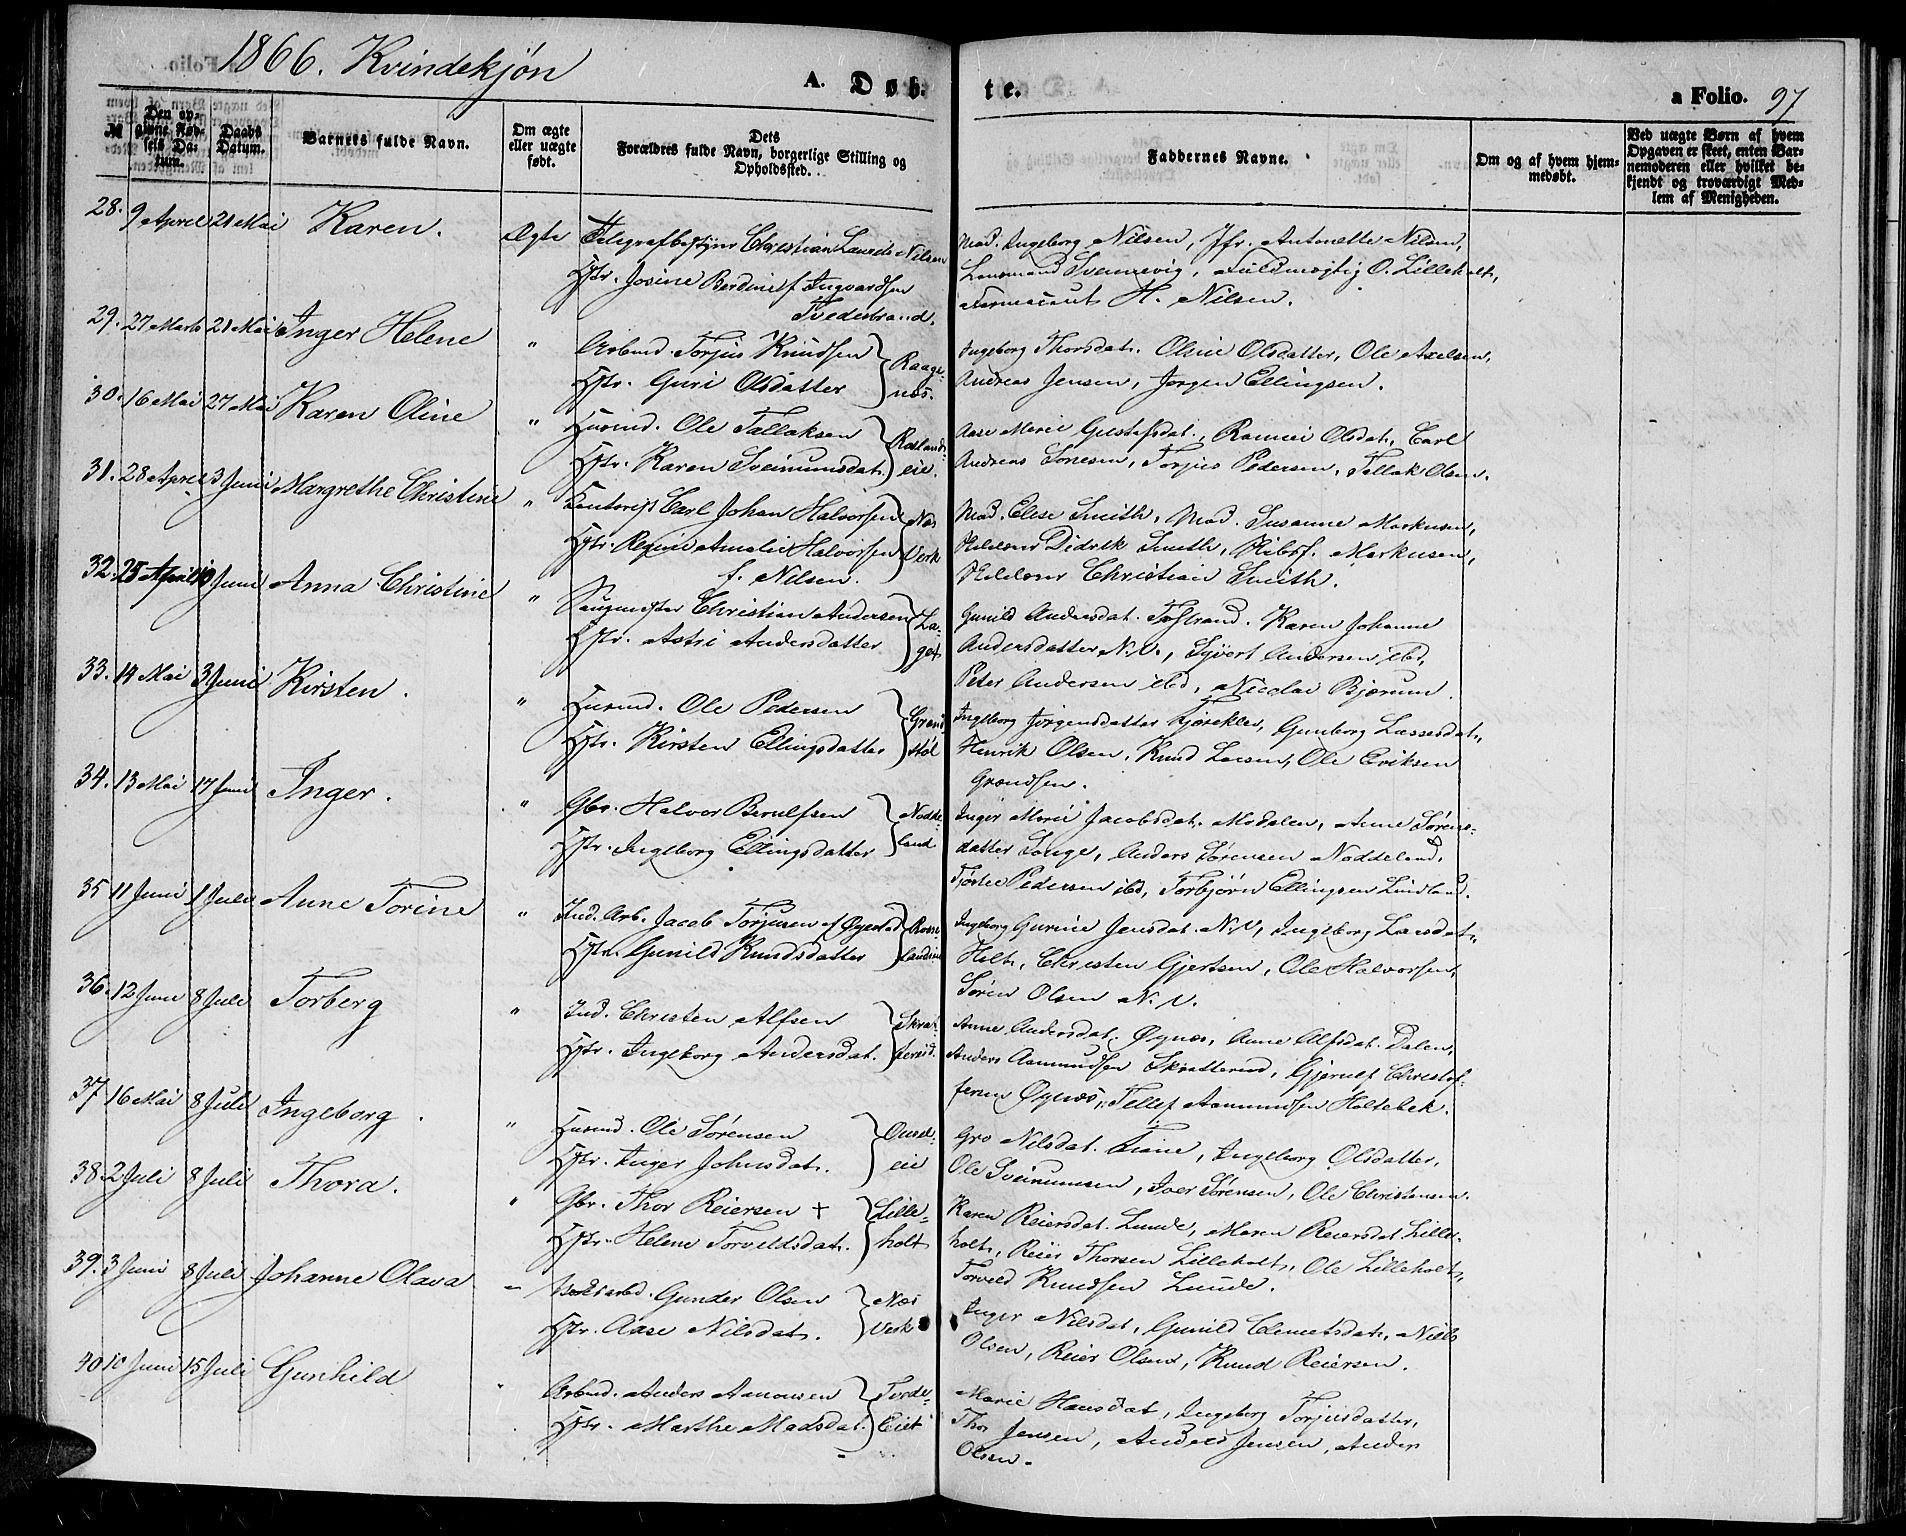 1866. Kvindekjøn
A. Døb-
te.
a Folio. 97
№
Den opgivne Fødsels Datum.
Daabs Datum.
Barnets fulde Navn.
Om ægte eller uægte født.
Dets Forældres fulde Navn, borgerlige Stilling og Opholdssted.
Faddernes Navne.
Om og af hvem hjemmedøbt.
Ved uægte Børn af hvem Opgaven er skeet, enten Barnemoderen eller hvilket bekjendt og troværdigt Medlem af Menigheden.
28. 9 April 21 Mai Karen. Ægte Telegrafbestyrer Christian Laurits Nilsen
Hstr. Josine Berdine f. Ingvardsen
Tvedestrand.
Mad. Ingeborg Nilsen, Jfr. Antonette Nilsen,
Lensmand Svennevig, Fuldmægtig O. Lilleholt,
Farmaceut H. Nilsen.
29. 27 Marts 21 Mai Inger Helene " Arbmd. Torjus Knudsen
Hstr. Guri Olsdatter
Raagenæs.
Ingeborg Thorsdat. Olsine Olsdatter, Ole Axelsen,
Andreas Jensen, Jørgen Ellingsen.
30. 16 Mai 27 Mai Karen Oline " Husmd. Ole Tallaksen
Hstr. Karen Sveinumsdat.
eie.
Aase Marie Gustafsdat., Olsdat., Carl
Andreas Tonesen, Torjus Pedersen, Tallak Olsen.
31. 28 April 3 Juni Margrethe Christine " Kontorist Carl Johan Halvorsen
Hstr. Regine Amalie Halvorsen
f. Nilsen.
Næs Verk
Mad. Elese Smith, Mad. Susanne Markusen,
Didrik Smith, Markusen,
Christian Smith.
32. 25 April 10 Juni Anna Christine " Christian Andersen
Hstr. Astri Andersdatter
Laget
Gunild Andersdat. Tvstrand. Karen Johanne
Andersdatter N.V., Syvert Andersen ibd,
Peter Andersen ibd, Nicolai Bjorum.
33. 14 Mai 3 Juni Kirsten. " Husmd. Ole Pedersen
Hstr. Kirsten Ellingsdatter
Ingeborg Jørgensdatter Gunborg Lassesdat.,
Henrik Olsen, Knud Larsen, Ole Eriksen
34. 13 Mai 17 Juni Inger. " Gbr. Halvor Berulfsen
Hstr. Ingeborg Ellingsdatter
Noddeland
Inger Marie Jacobsdat. Modalen, Anne Sørensdatter
Songe, Anders Sørensen Noddeland,
Pedersen ibd, Torbjørn Ellingsen Lindland.
35 11 Juni 1 Juli Anne Torine " Ind. Arb. Jacob Torjusen af Øyestad
Hstr. Gunild Knudsdatter
Ingeborg Gurine Jensdat. N.V, Ingeborg Larsdat.
Holt, Christen Gjertsen, Ole Halvorsen,
Søren Olsen N.V.
36. 12 Juni 8 Juli Torberg " Ind. Christen Alfsen
Hstr. Ingeborg Andersdat.
Anne Andersdat. Øynæs, Anne Alfsdat. Dalen,
Anders Aanundsen Skratterud, Gjerulf Christoffersen
Øynæs, Tellef Aanundsen Holtebek.
37 16 Mai 8 Juli Ingeborg. " Husmd. Ole Sørensen
Hstr. Inger Johnsdat.
eie
Gro Nilsdat. Tiane, Ingeborg Olsdatter,
Ole Sveinumsen, Iver Sørensen, Ole Christensen.
38. 2 Juli 8 Juli Thora. " Gbr. Thor Reiersen +
Hstr. Helene Torvildsdat.
Lilleholt
Karen Reiersdat. Lunde, Maren Reiersdat Lilleholt,
Reier Thorsen Lilleholt, Ole Lilleholt,
Torveld Knudsen Lunde.
39. 3 Juni 8 Juli Johanne Olava – Gunder Olsen
Hstr. Aase Nilsdat.
Næs Verk
Inger Nilsdat, Gunild Clemetsdat., Niels
Olsen, Reier Olsen, Knud Reiersen.
40 10 Juni 15 Juli Gunhild " Arbmd. Anders Aanonsen
Hstr. Marthe Madsdat.
Eiet
Marie Hansdat, Ingeborg Torjusdatter,
Thor Jensen, Anders Jensen, Anders
Olsen.